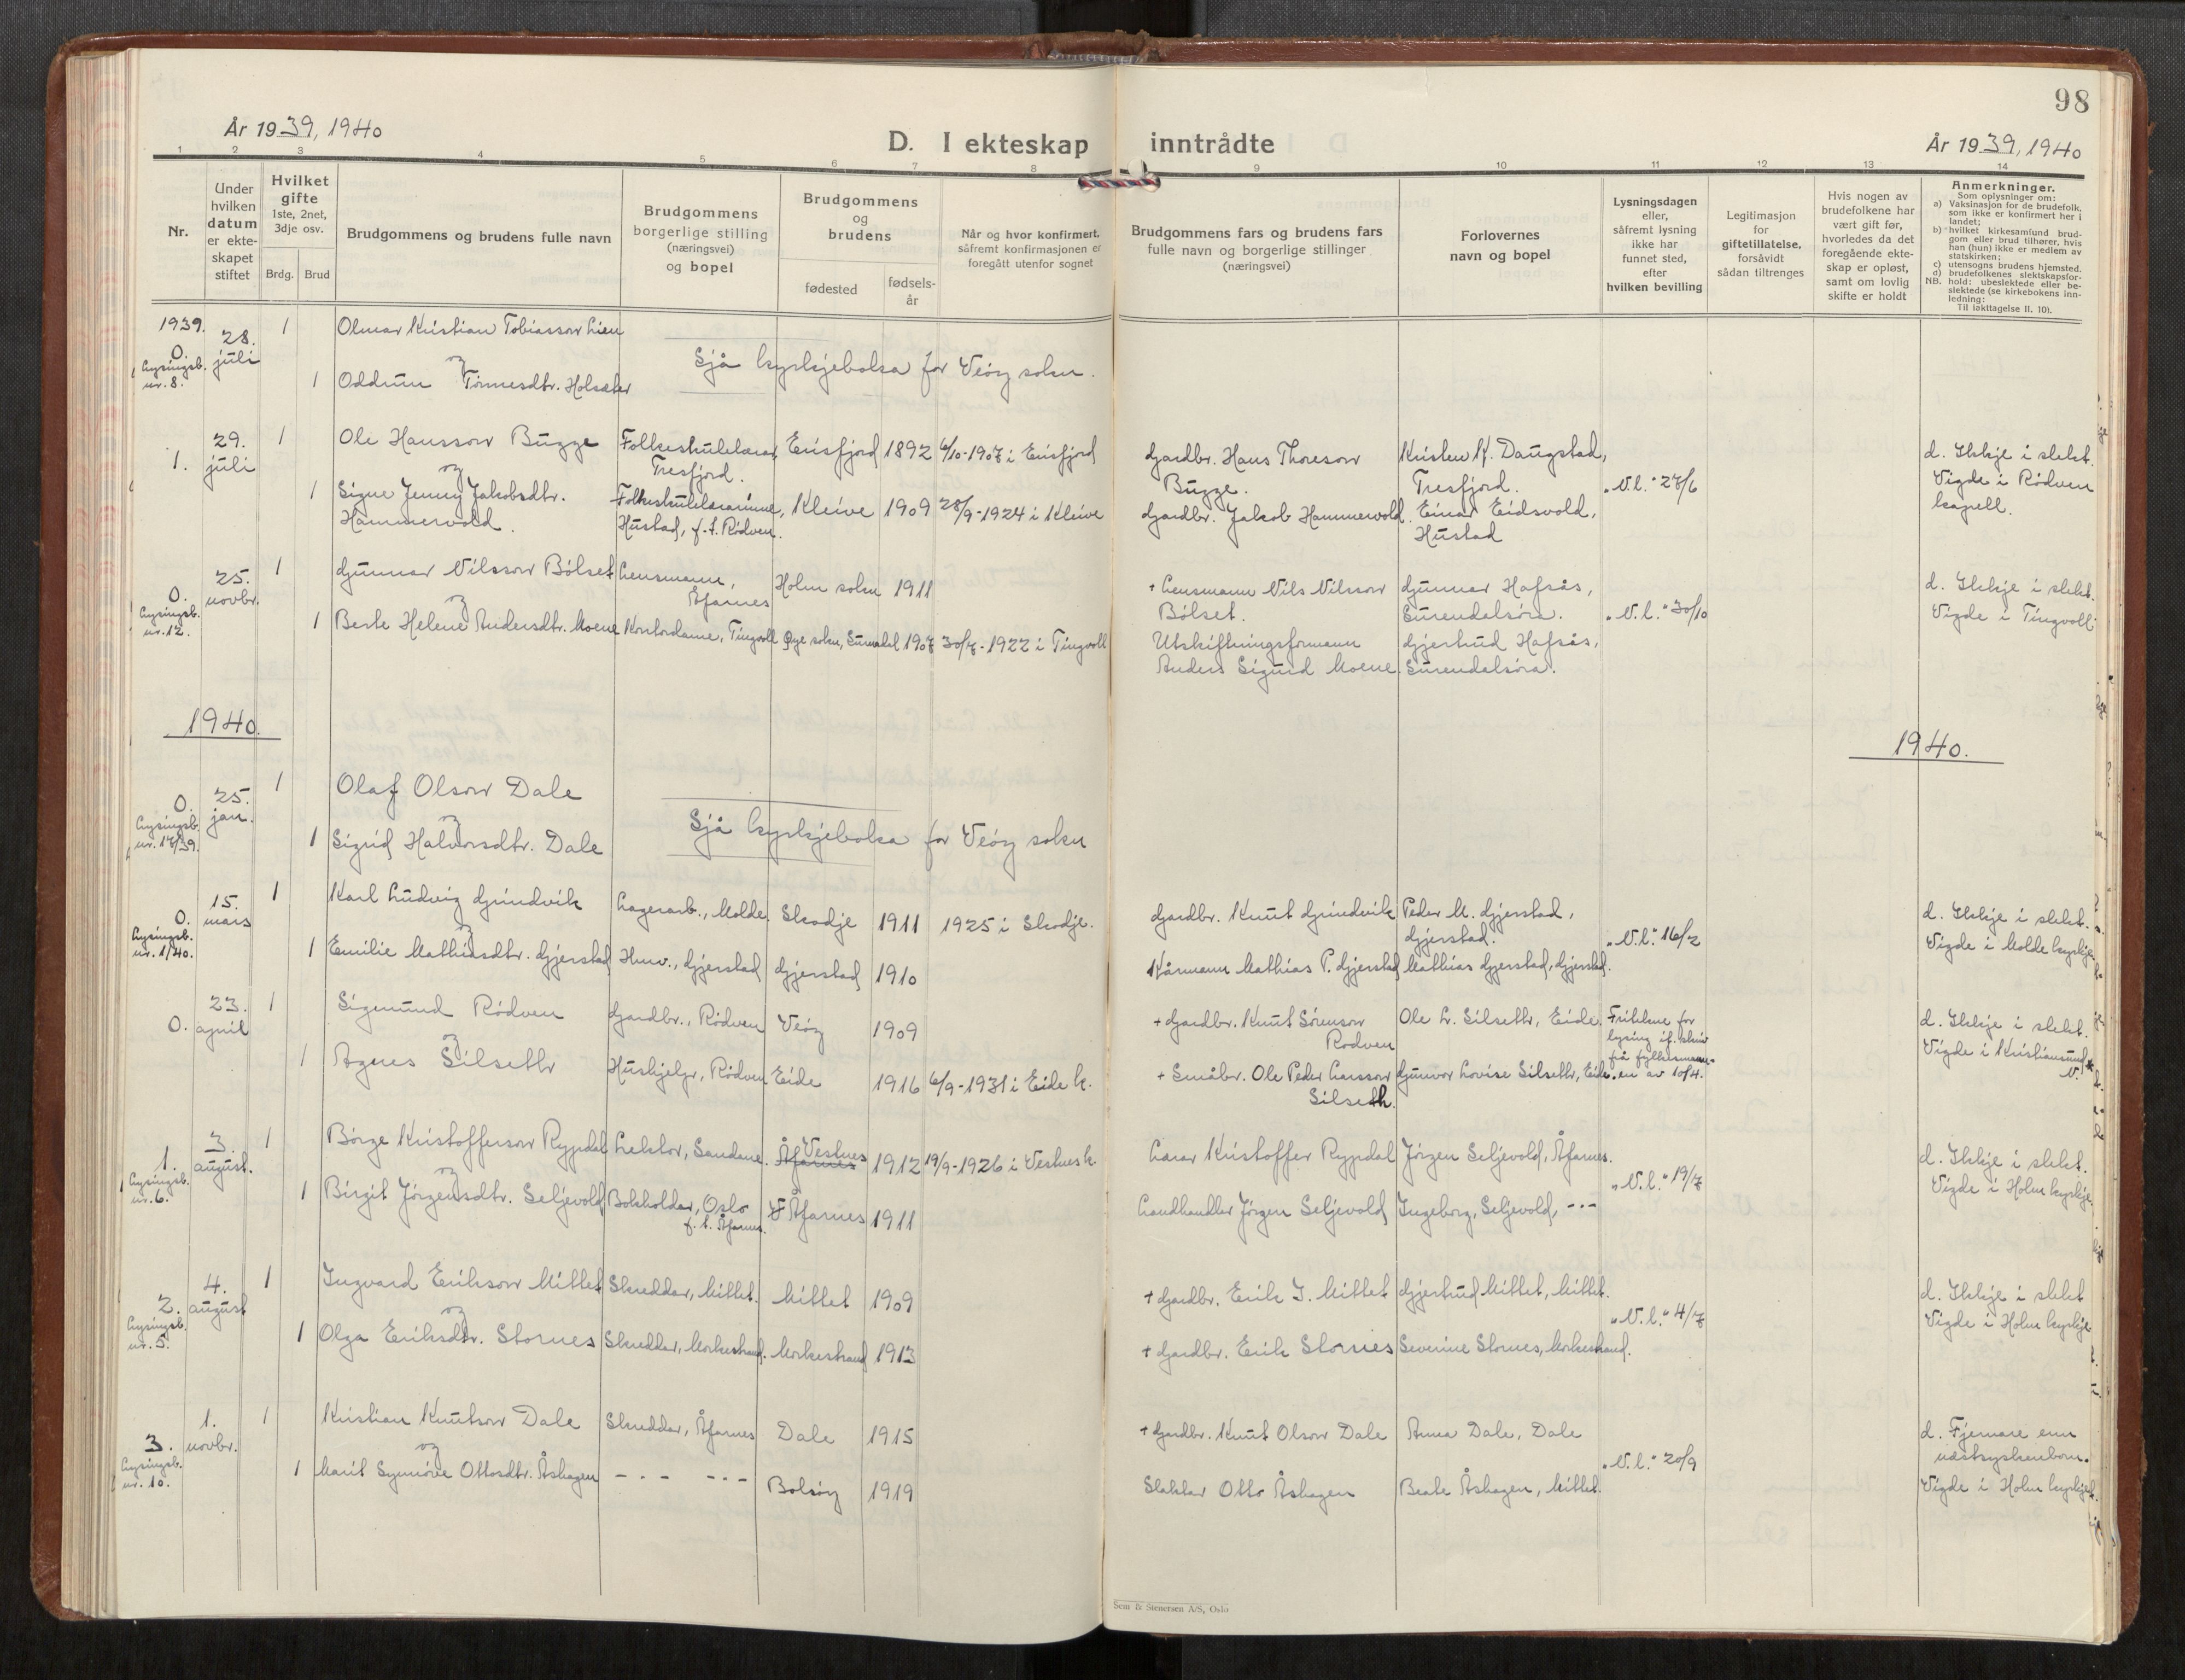 98
År 1939, 1940
D. I ekteskap inntrådte
År 1939, 1940
1 2 3 4 5 6 7 8 9 10 11 12 13 14
Nr.
Under hvilken datum er ekteskapet stiftet
Hvilket gifte
1ste, 2net, 3dje osv.
Brdg. Brud
Brudgommens og brudens fulle navn
Brudgommens borgerlige stilling (næringsvei) og bopel
Brudgommens og brudens
fødested
fødselsår
Når og hvor konfirmert, såfremt konfirmasjonen er foregått utenfor sognet
Brudgommens fars og brudens fars fulle navn og borgerlige stillinger (næringsvei)
Forlovernes navn og bopel
Lysningsdagen eller, såfremt lysning ikke har funnet sted, efter hvilken bevilling
Legitimasjon for giftetillatelse, forsåvidt sådan tiltrenges
Hvis nogen av brudefolkene har vært gift før, hvorledes da det foregående ekteskap er opløst, samt om lovlig skifte er holdt
Anmerkninger.
Som oplysninger om:
a) Vaksinasjon for de brudefolk, som ikke er konfirmert her i landet;
b) hvilket kirkesamfund brudgom eller brud tilhører, hvis han (hun) ikke er medlem av statskirken;
c) utensogns brudens hjemsted.
d) brudefolkenes slektskapsforhold: ubeslektede eller beslektede (se kirkebokens innledning:
NB.
Til iakttagelse II. 10).
1939.
0. Lysingsb. nr. 8.
28. juli
1 Olmar Kristian Tobiasson Lien
og
1 Oddrun Tønnesdtr. Holsæter
Sjå kyrkjeboka for Veøy sokn.
1.
29. juli
1 Ole Hansson Bugge
Folkeskulelærar, Tresfjord.
Eirisfjord 1892 6/10-1907 i Eirisfjord
Gardbr. Hans Thoreson Bugge.
Kristen K. Daugstad, Tresfjord.
og
1 Signe Jenny Jakobsdtr. Hammervold.
Folkeskulelærarinne, Hustad, f.t. Rødven.
Kleive 1909 28/9-1924 i Kleive
Gardbr. Jakob Hammervold.
Einar Eidsvold, Hustad
"N.l." 27/6
d. Ikkje i slekt.
Vigde i Rødven kapell.
0. Lysingsb. nr. 12.
25. novbr.
1 Gunnar Nilsson Bølset
Lensmann, Åfarnes
Holm sokn 1911
+ Lensmann Nils Nilsson Bølset.
Gunnar Hafsås, Surendalsøra.
og
1 Berte Helene Andersdtr. Moene
Kontordame, Tingvoll
Øye sokn, Surnadal 1907 30/7-1922 i Tingvoll
Utskiftningsformann Anders Sigurd Moene.
Gjertrud Hafsås, Surendalsøra.
"N.l." 30/10
d. Ikkje i slekt.
Vigde i Tingvoll.
1940.
1940.
0. Lysingsb. nr. 17/39.
25. jan.
1 Olaf Olson Dale
og
1 Sigrid Halvorsdtr. Dale
Sjå kyrkjeboka for Veøy sokn
0. Lysingsb. nr. 1/40.
15. mars
1 Karl Ludvig Grindvik
Lagerarb., Molde.
Skodje 1911 1925 i Skodje.
Gardbr. Knut Grindvik
Peder M. Gjerstad, Gjerstad.
og
1 Emilie Mathiasdtr. Gjerstad
Husv., Gjerstad
Gjerstad 1910
Kårmann Mathias P. Gjerstad
Mathias Gjerstad, Gjerstad.
"N.l." 16/2
d. Ikkje i slekt.
Vigde i Molde kyrkje.
0.
23. april
1 Sigmund Rødven
Gardbr., Rødven
Veøy 1909
+ Gardbr. Knut Sørenson Rødven
Ole L. Silseth, Eide.
og
1 Agnes Silseth
Hushjelp, Rødven
Eide 1916 6/9-1931 i Eide k.
+ Småbr. Ole Peder Larsson Silseth.
Gunvor Lovise Silseth, Eide.
Fritekne for lysing if. skriv frå fylkesmannen av 10/4.
d. Ikkje i slekt.
Vigde i Kristiansund N.
1. Lysingsb. nr. 6.
3. august.
1 Børge Kristofferson Rypdal
Lektor, Sandane.
Åfarnes Vestnes 1912 19/9-1926 i Vestnes k.
Lærar Kristoffer Rypdal
Jørgen Seljevold, Åfarnes.
og
1 Birgit Jørgensdtr. Seljevold
Bokholdar, Oslo f.t. Åfarnes.
Åfarnes 1911
Landhandler Jørgen Seljevold
Ingeborg Seljevold, ---
"N.l." 19/7
d. Ikkje i slekt.
Vigde i Holm kyrkje.
2. Lysingsb. nr. 5.
4. august
1 Ingvard Erikson Mittet
Skreddar, Mittet.
Mittet 1909
+ Gardbr. Erik I. Mittet
Gjertrud Mittet, Mittet.
og
1 Olga Eriksdtr. Stornes
Skreddar, Morkestrand.
Morkestrand 1913
+ Gardbr. Erik Stornes
Severine Stornes, Morkestrand.
"N.l." 4/7
d. Ikkje i slekt
Vigde i Holm kyrkje
3. Lysingsb. nr. 10.
1. novbr.
1 Kristian Knutson Dale
Skreddar, Åfarnes
Dale 1915
+ Gardbr. Knut Olson Dale
Anna Dale, Dale
og
1 Marit Synnøve Ottosdtr. Åshagen
--- ---
Bolsøy 1919
Slaktar Otto Åshagen
Beate Åshagen, Mittet.
"N.l." 20/9
d. Fjernare enn næstsyskenborn.
Vigde i Holm kyrkje.
Sem & Stenersen A/S, Oslo